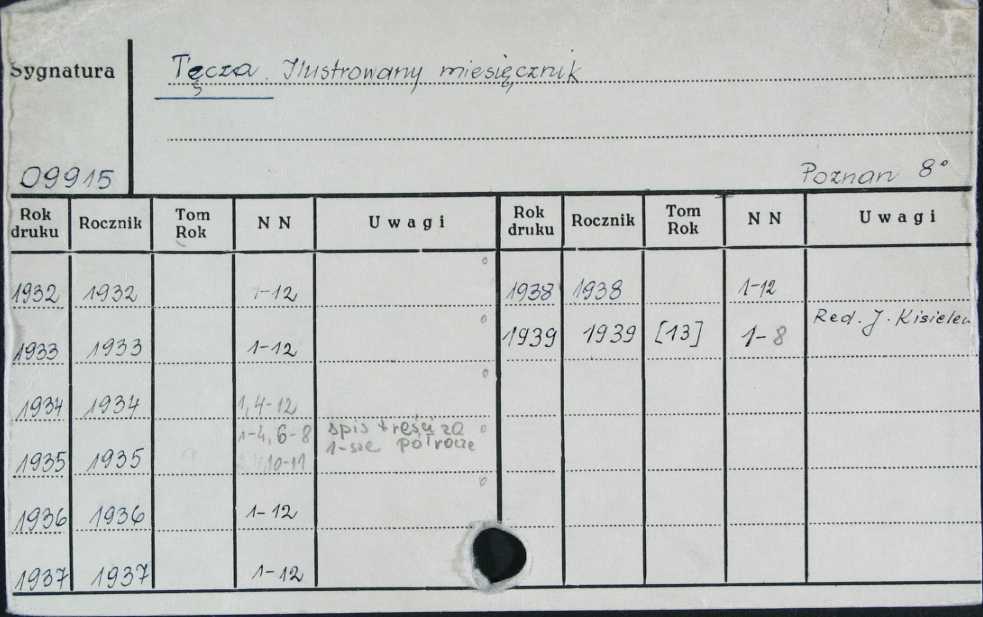 Sygnatura
Tęcza. Ilustrowany miesięcznik
09915
Poznań 8°
Rok druku Rocznik Tom Rok N N Uwagi Rok druku Rocznik Tom Rok N N Uwagi
1932 1932 1-12 1938 1938 1-12
1933 1933 1-12 1939 1939 [13] 1-8 Red. J. Kisielew
1934 1934 1,4-12
1935 1935 1-4, 6-8 spis treści za
10-11 1-sze półrocze
1936 1936 1-12
1937 1937 1-12